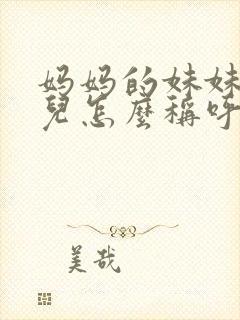 妈妈的妹妹
兒怎麼稱呼
美哉